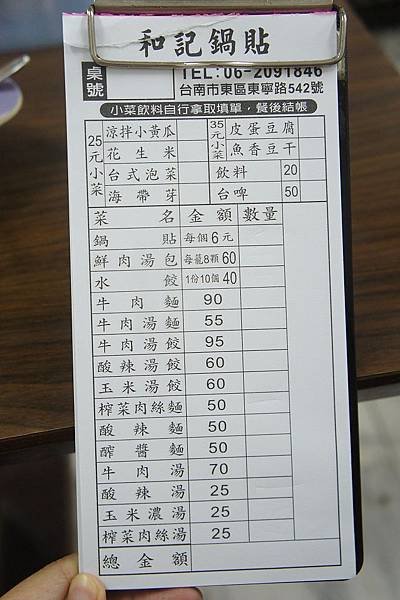 和記鍋貼
桌號
TEL:06-2091846
台南市東區東寧路542號
小菜飲料自行拿取填單,餐後結帳
25元小菜
涼拌小黃瓜
花生米
台式泡菜
海帶芽
35元小菜
皮蛋豆腐
魚香豆干
飲料 20
台啤 50
菜名 金額 數量
鍋貼 每個6元
鮮肉湯包 每籠8顆 60
水餃 1份10個 40
牛肉麵 90
牛肉湯麵 55
牛肉湯餃 95
酸辣湯餃 60
玉米湯餃 60
榨菜肉絲麵 50
酸辣麵 50
酢醬麵 50
牛肉湯 70
酸辣湯 25
玉米濃湯 25
榨菜肉絲湯 25
總金額